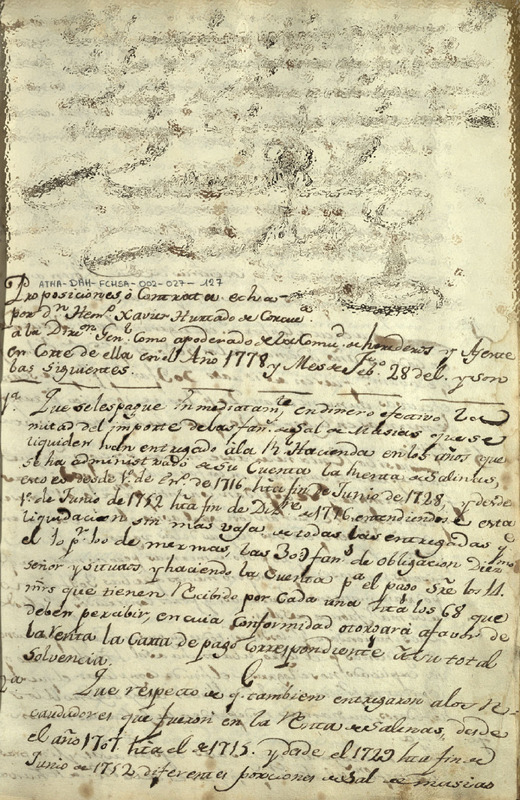 ATHA-DAH-FCHSA-002-027-127
Proposiciones, ô Contrata echa
por dn Hemo Xavier Hurtado de Corcuera
â la Diron Genl Como apoderado de la Comud de herederos y Agente
en Corte de ella en el Año 1778 y Mes de Febo 28 del y son
las siguientes.
1a Que se les pague inmediatamte en dinero efectivo la
mitad del importe de las fans de Sal de Masias que se
liquiden han entregado âla Rl Hacienda en los años que
se ha administrado de su Cuenta la Renta de Salinas,
esto es desde 1o de Eno de 1716 hta fin de Junio de 1728, y desde
1o de Junio de 1752 hta fin de Dizre de 1776 entendiendose esta
liquidacion sin mas vaja de todas las entregadas q
el 10 pr 100 de mermas, las 309 fans de obligacion
señor y situats y haciendo la Cuenta pa el pago Sre los 14
mrs que tienen Recibido por Cada una hta los 68 que
deben percibir, en cuia Conformidad otorgará afavor de
la Renta la Carta de pago Correspondiente â su total
Solvencia.
2a Que respecto de q. tambien entregaron a los Re-
caudadores que fueron en la Renta de Salinas, desde
el año 1707 hta el de 1715. y dsde el 1729 hta fin de
Junio de 1752 diferentes porciones de Sal de masias